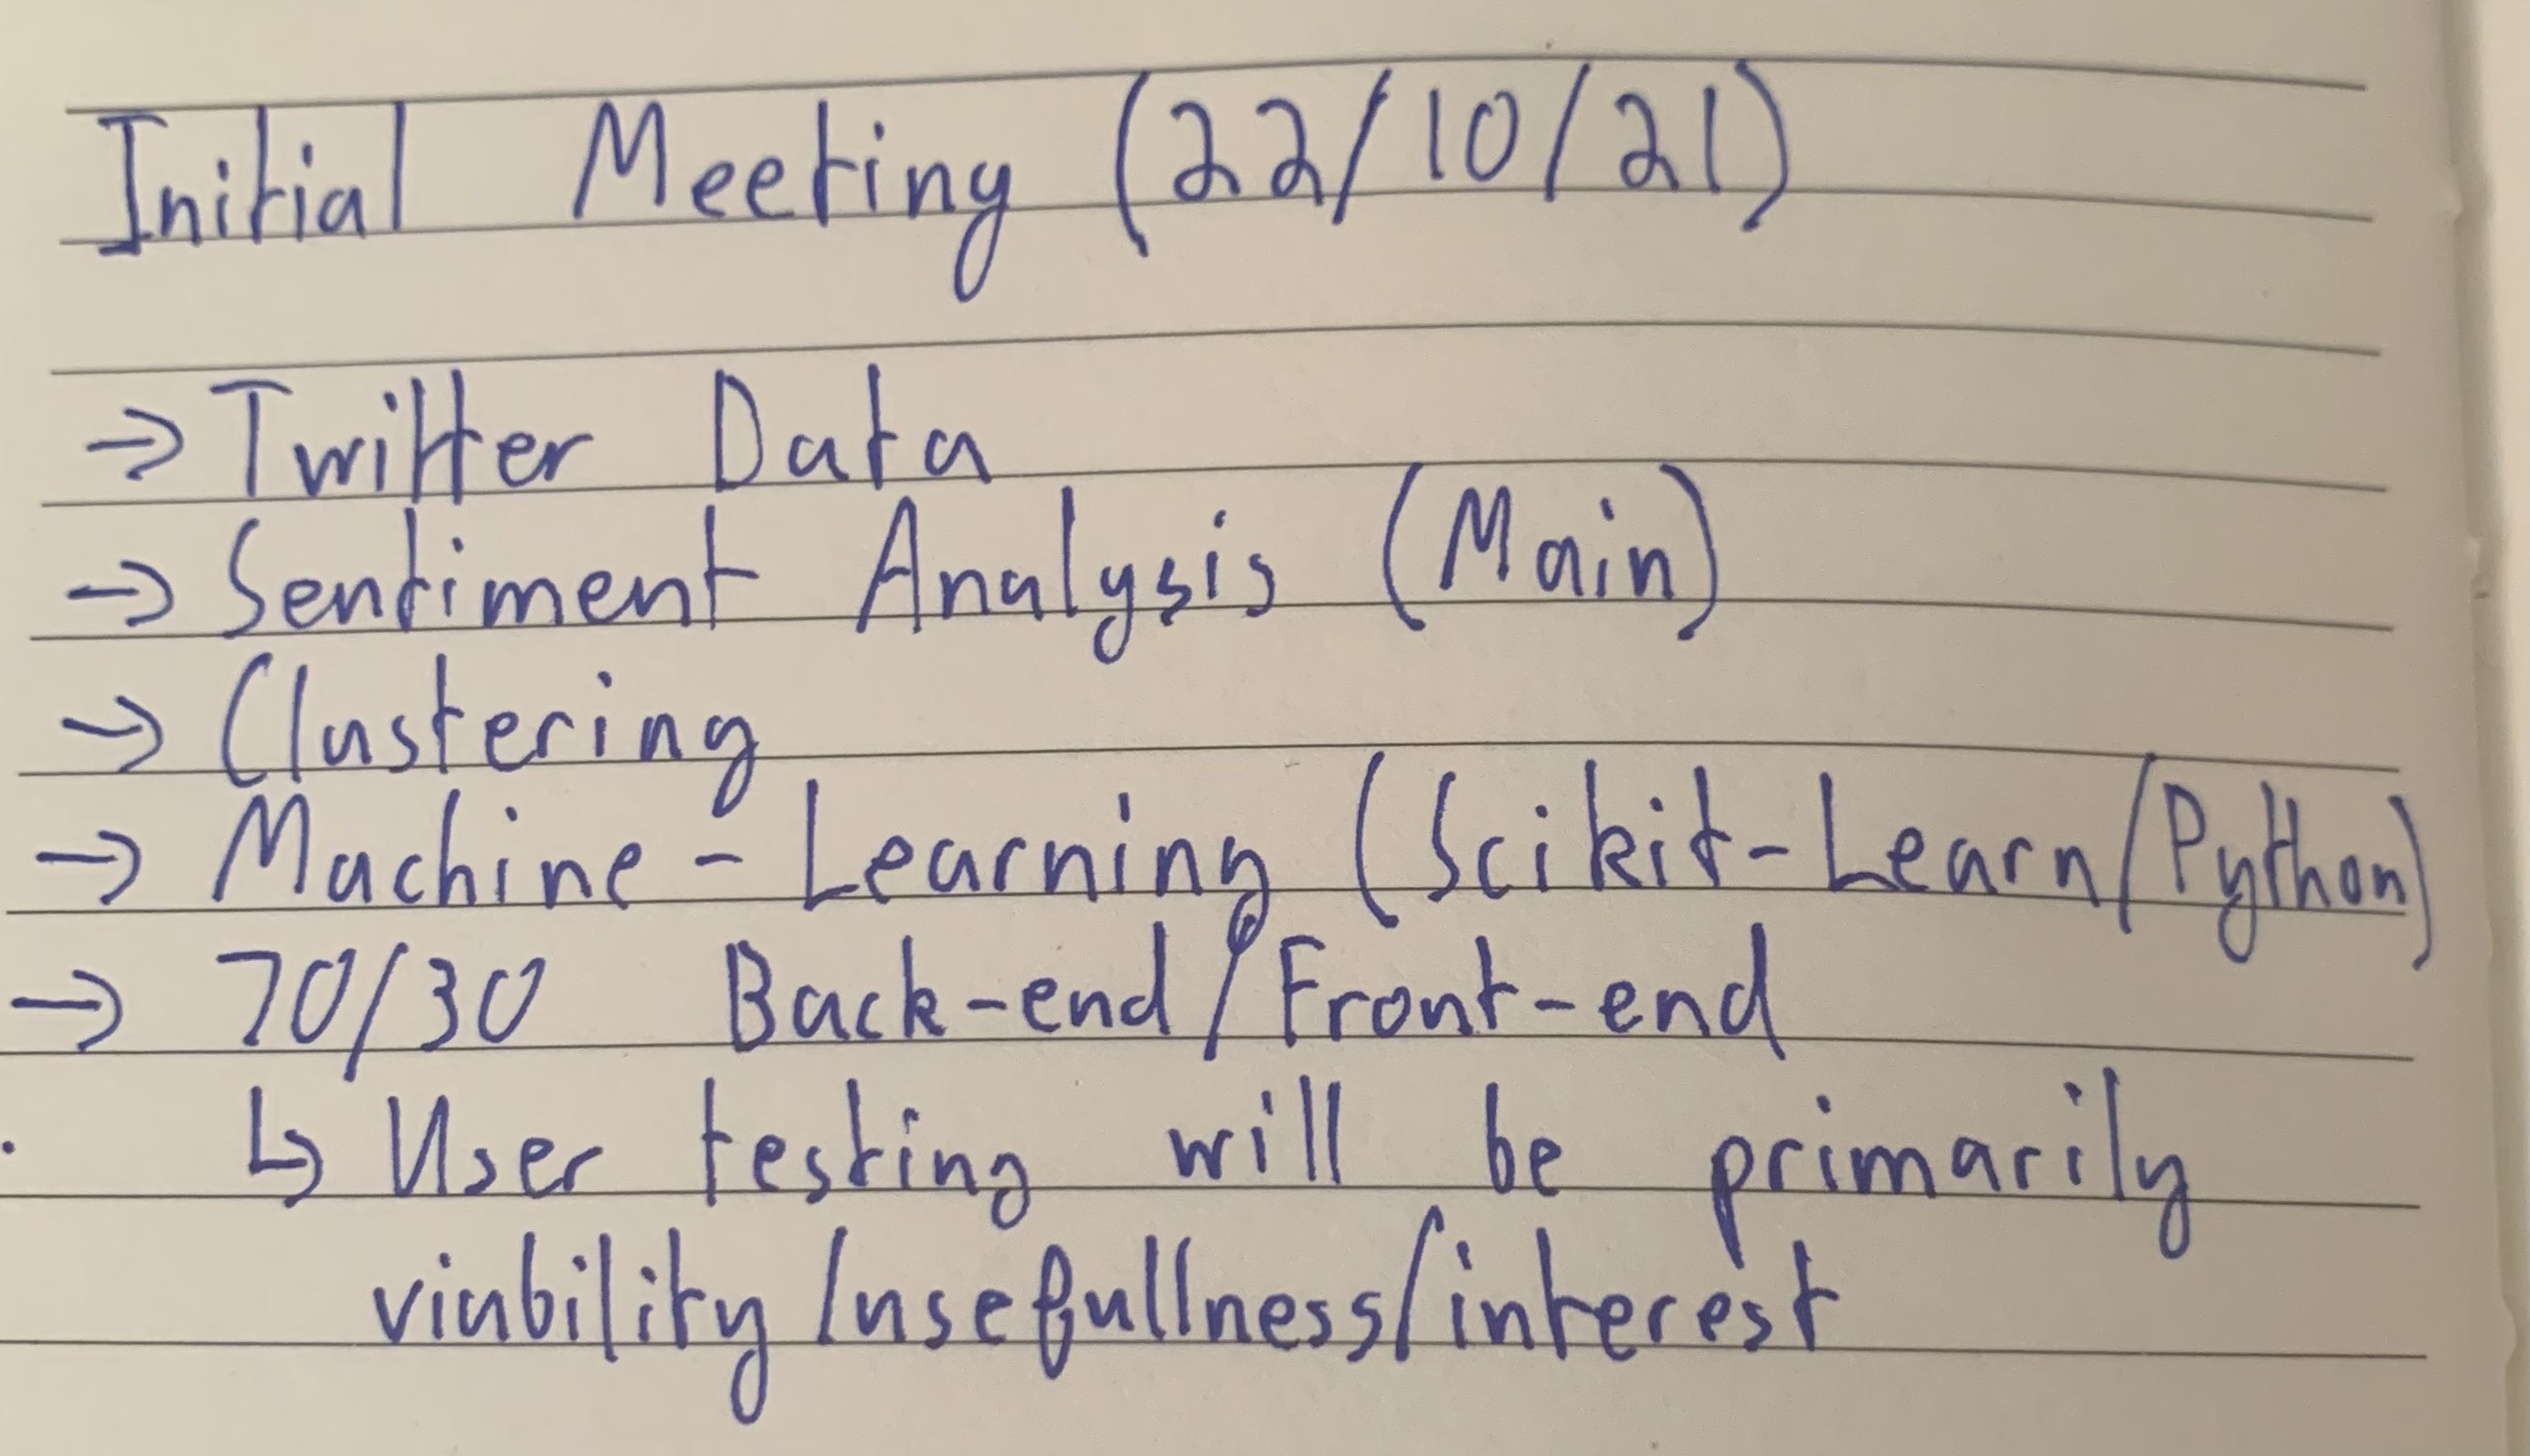 Initial Meeting (22/10/21)
→ Twitter Data
→ Sentiment Analysis (Main)
→ Clustering
→ Machine - Learning (Scikit-Learn/Python)
→ 70/30 Back-end/Front-end
↳ User testing will be primarily
viability/usefullness/interest